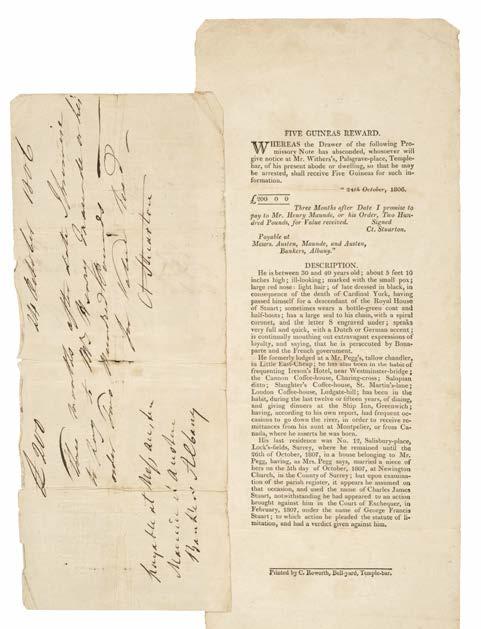 FIVE GUINEAS REWARD.
WHEREAS the Drawer of the following Pro-
missory Note has absconded, whosoever will
give notice at Mr. Withers's, Palsgrave-place, Temple-
bar, of his present abode or dwelling, so that he may
be arrested, shall receive Five Guineas for such in-
formation.
" 24th October, 1806.
£200 0 0
Three Months after Date I promise to
pay to Mr. Henry Maunde, or his Order, Two Hun-
dred Pounds, for Value received. Signed
Ct. Stuarton.
Payable at
Messrs. Austen, Maunde, and Austen,
Bankers, Albany."
DESCRIPTION.
He is between 30 and 40 years old; about 5 feet 10
inches high; ill-looking; marked with the small pox;
large red nose: light hair; of late dressed in black, in
consequence of the death of Cardinal York, having
passed himself for a descendant of the Royal House
of Stuart; sometimes wears a bottle-green coat and
half-boots; has a large seal to his chain, with a spiral
coronet, and the letter S engraved under; speaks
very full and quick, with a Dutch or German accent;
is continually mouthing out extravagant expressions of
loyalty, and saying, that he is persecuted by Bona-
parte and the French government.
He formerly lodged at a Mr. Pegg's, tallow chandler,
in Little East-Cheap; he has also been in the habit of
frequenting Ireson's Hotel, near Westminster-bridge;
the Cannon Coffee-house, Charing-cross; Salopian
ditto; Slaughter's Coffee-house, St. Martin's-lane;
London Coffee-house, Ludgate-hill; has been in the
habit, during the last twelve or fifteen years, of dining,
and giving dinners at the Ship Inn, Greenwich;
having, according to his own report, had frequent oc-
casions to go down the river, in order to receive re-
mittances from his aunt at Montpelier, or from Ca-
nada, where he asserts he was born.
His last residence was No. 12, Salisbury-place,
Lock's-fields, Surrey, where he remained until the
26th of October, 1807, in a house belonging to Mr.
Pegg, having, as Mrs. Pegg says, married a niece of
hers on the 5th day of October, 1807, at Newington
Church, in the County of Surrey; but upon examina-
tion of the parish register, it appears he assumed on
that occasion, and used the name of Charles James
Stuart, notwithstanding he had appeared to an action
brought against him in the Court of Exchequer, in
February, 1807, under the name of George Francis
Stuart; to which action he pleaded the statute of li-
mitation, and had a verdict given against him.
Printed by C. Roworth, Bell-yard, Temple-bar.
200
Ct Stuarton
Payable at Mess Austen
Maunde & Austen
Bankers Albany